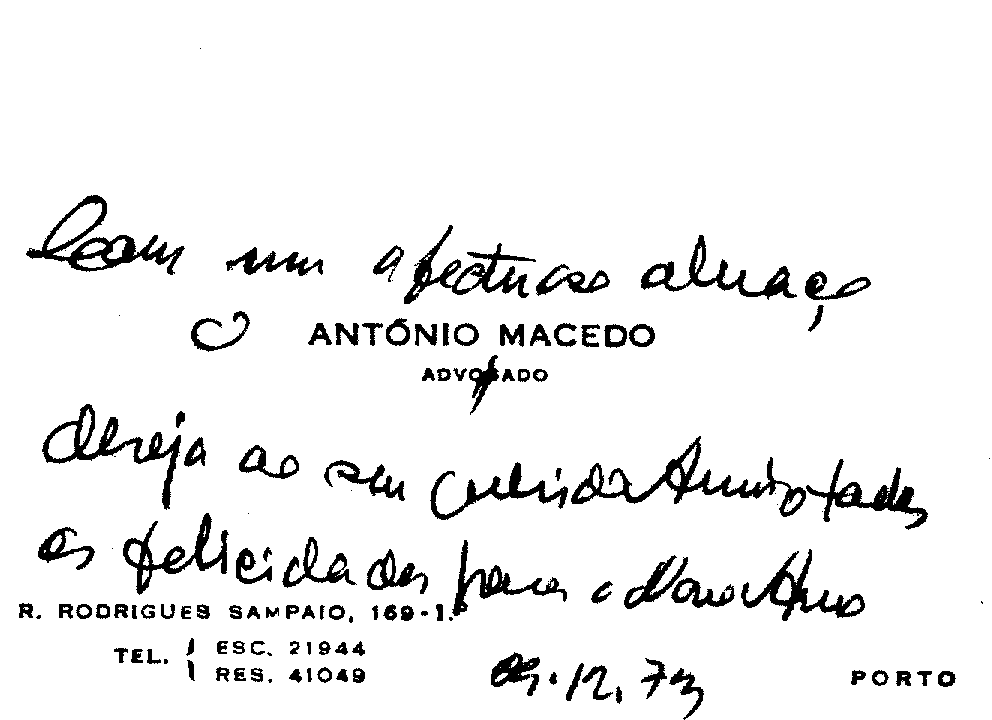 Com um afectuoso abraço
O ANTÓNIO MACEDO
ADVOGADO
deseja ao seu querido Amigo todas
as felicidades para o Novo Ano
R. RODRIGUES SAMPAIO, 169-1.º
TEL. { ESC. 21944
RES. 41049
12. 73
PORTO